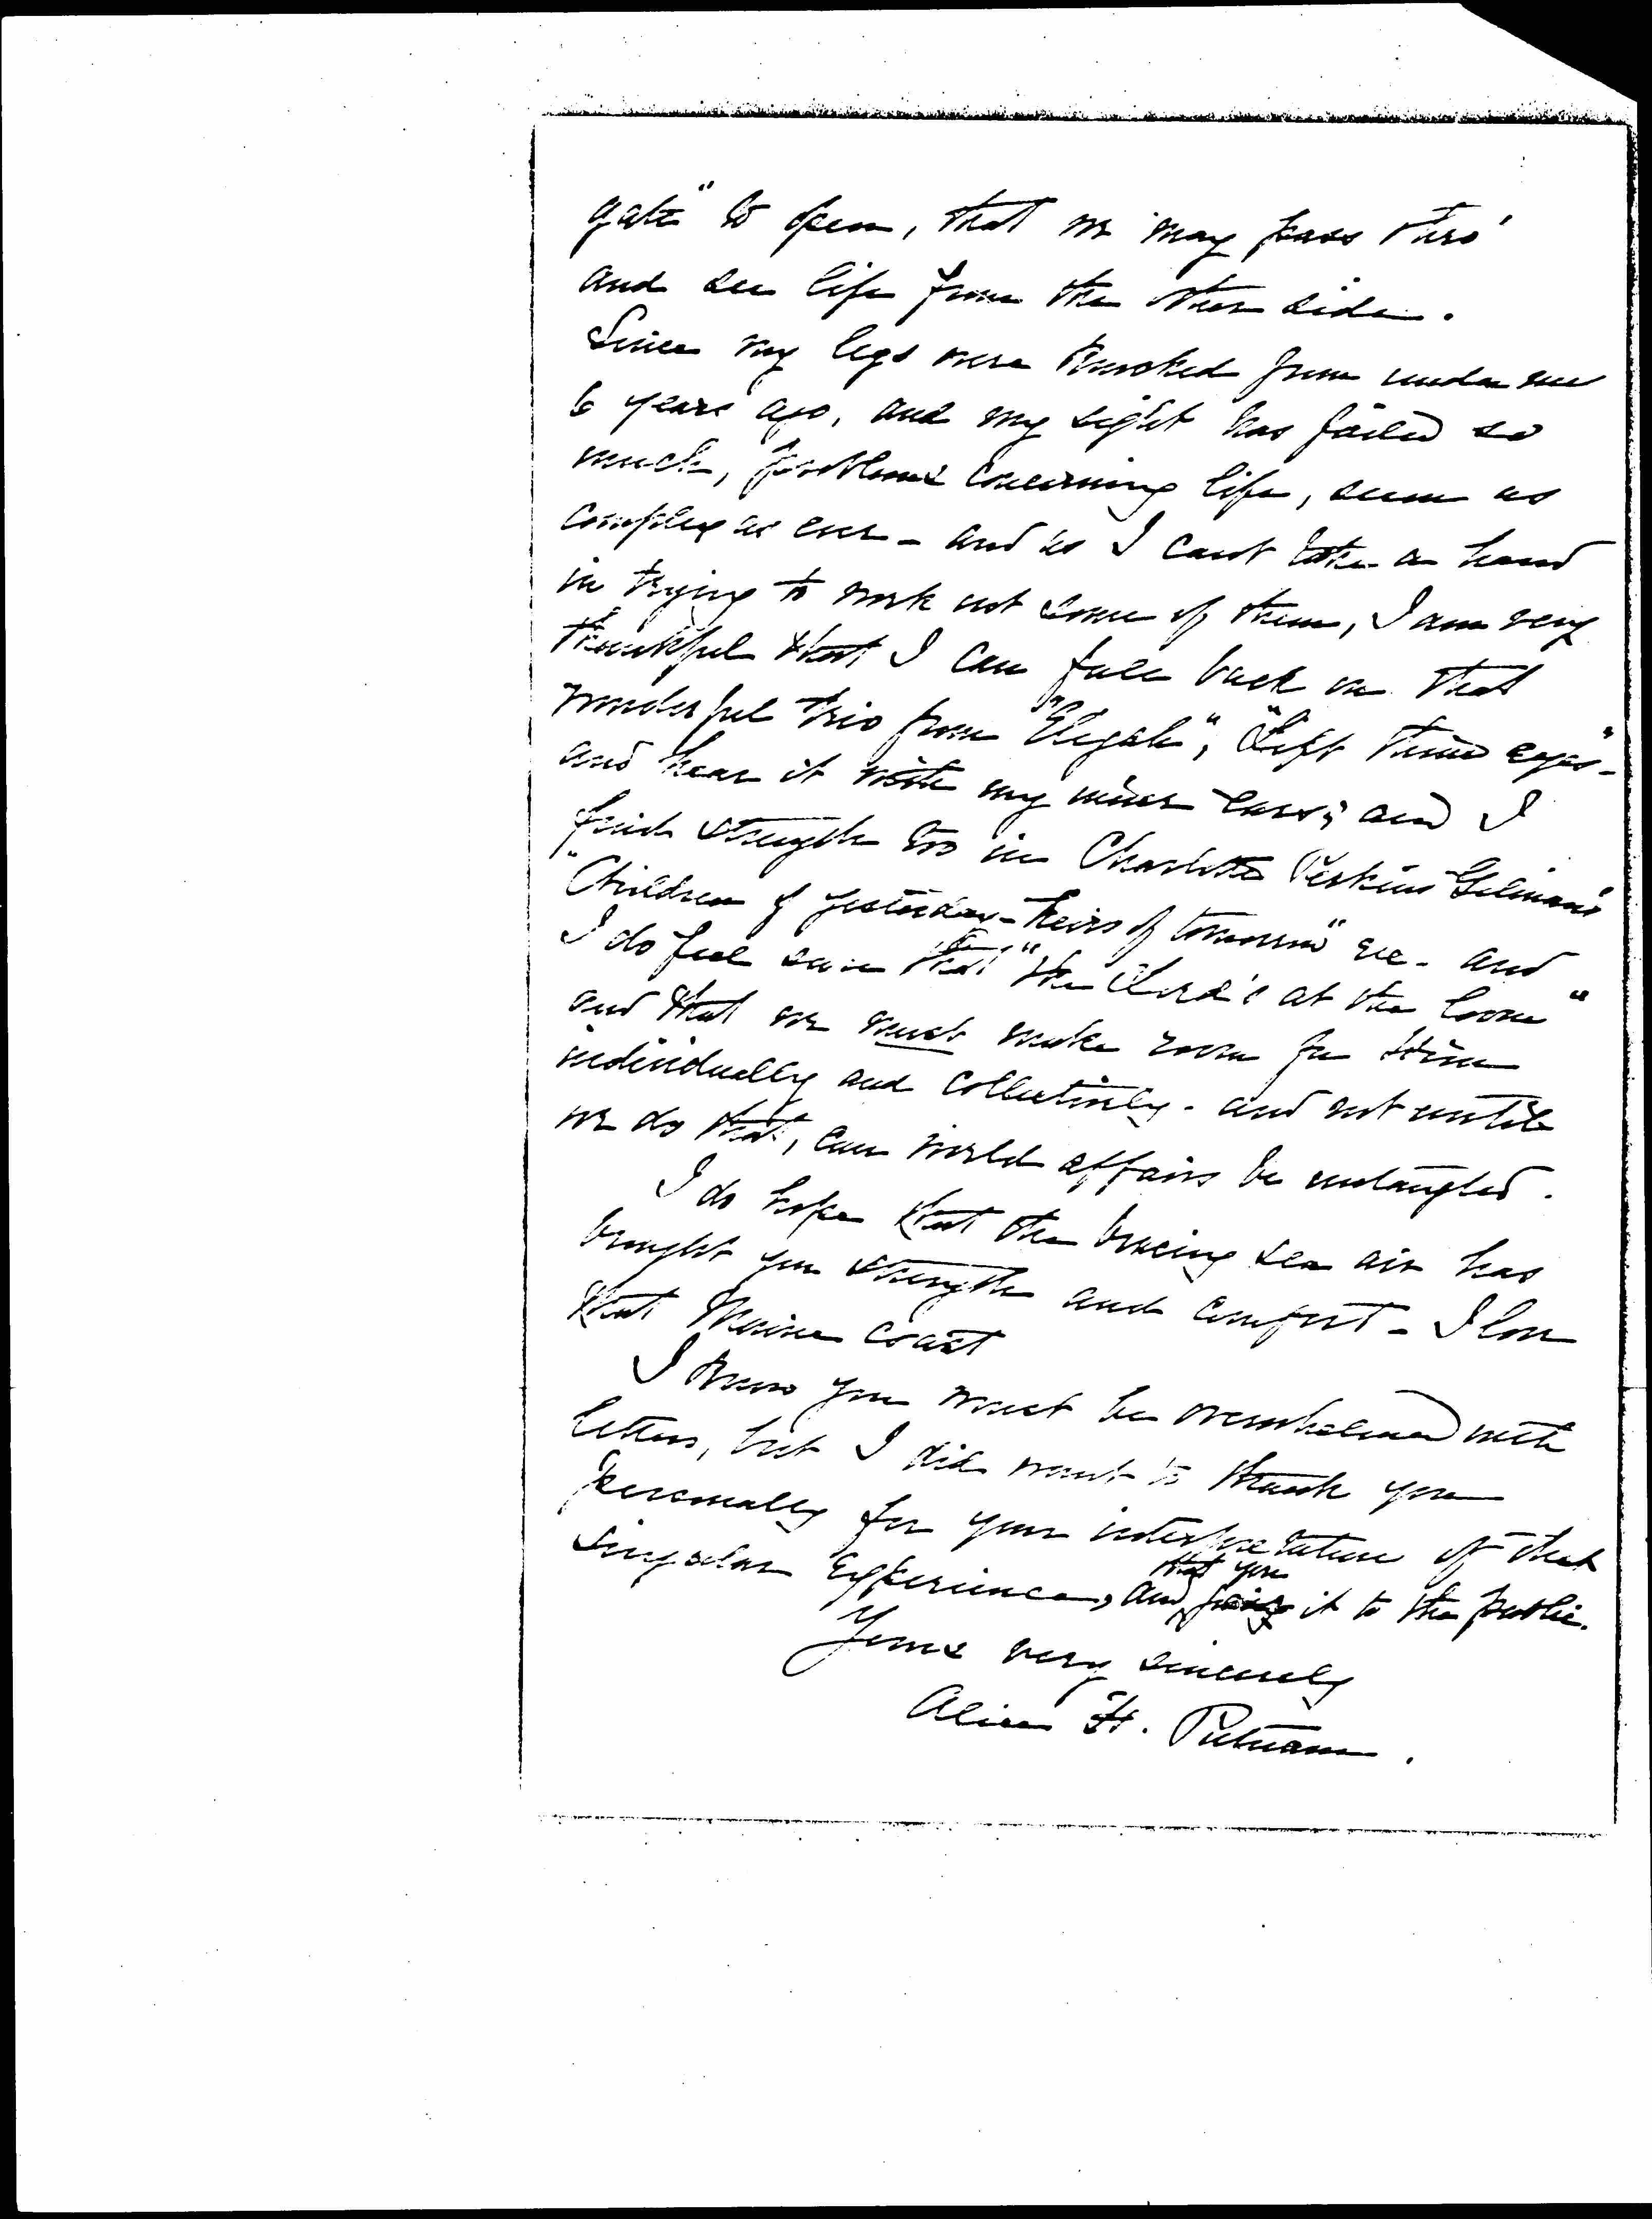 gate" to open, that we may pass thro'
and see life from the other side.
Since my legs were knocked from under me
6 years ago, and my sight has failed so
much, problems concerning life, seem as
complex as ever - and as I cant take a hand
in trying to work out some of them, I am very
thankful that I can fall back on that
wonderful trio from "Elijah", "Lift thine eyes" -
and hear it with my inner ears; and I
find strength too in Charlotte Perkins Gilman's
"Children of yesterday - heirs of tomorrow" etc - and
I do feel sure that "the Lord's at the loom"
and that we must make room for Him
individually and collectively - and not until
we do that, can world affairs be untangled.
I do hope that the bracing sea air has
brought you strength and comfort - I love
that Maine coast
I know you must be overwhelmed with
letters, but I did want to thank you
personally for your interpretation of that
singular experience, and that you it to the public.
Yours very sincerely
Alice H. Putnam.